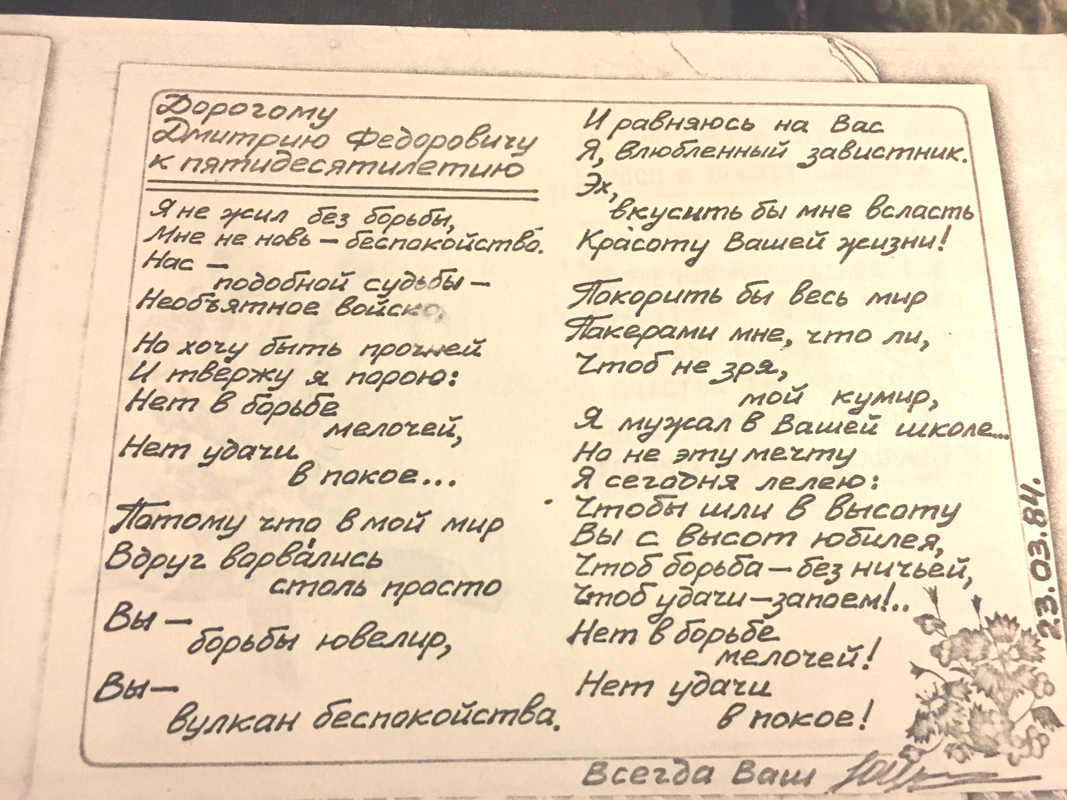 Дорогому
Дмитрию Федоровичу
к пятидесятилетию
Я не жил без борьбы,
Мне не новь — беспокойство.
Нас —
подобной судьбы —
Необъятное войско,
Но хочу быть прочней
И твержу я порою:
Нет в борьбе
мелочей,
Нет удачи
в покое...
Потому что в мой мир
Вдруг ворвались
столь просто
Вы —
борьбы ювелир,
Вы —
вулкан беспокойства.
И равняюсь на Вас
Я, влюбленный завистник.
Эх,
вкусить бы мне всласть
Красоту Вашей жизни!
Покорить бы весь мир
Пакерами мне, что ли,
Чтоб не зря,
мой кумир,
Я мужал в Вашей школе...
Но не эту мечту
Я сегодня лелею:
Чтобы шли в высоту
Вы с высот юбилея,
Чтоб борьба — без ничьей,
Чтоб удачи — запоем!..
Нет в борьбе
мелочей!
Нет удачи
в покое!
Всегда Ваш
23.03.84.